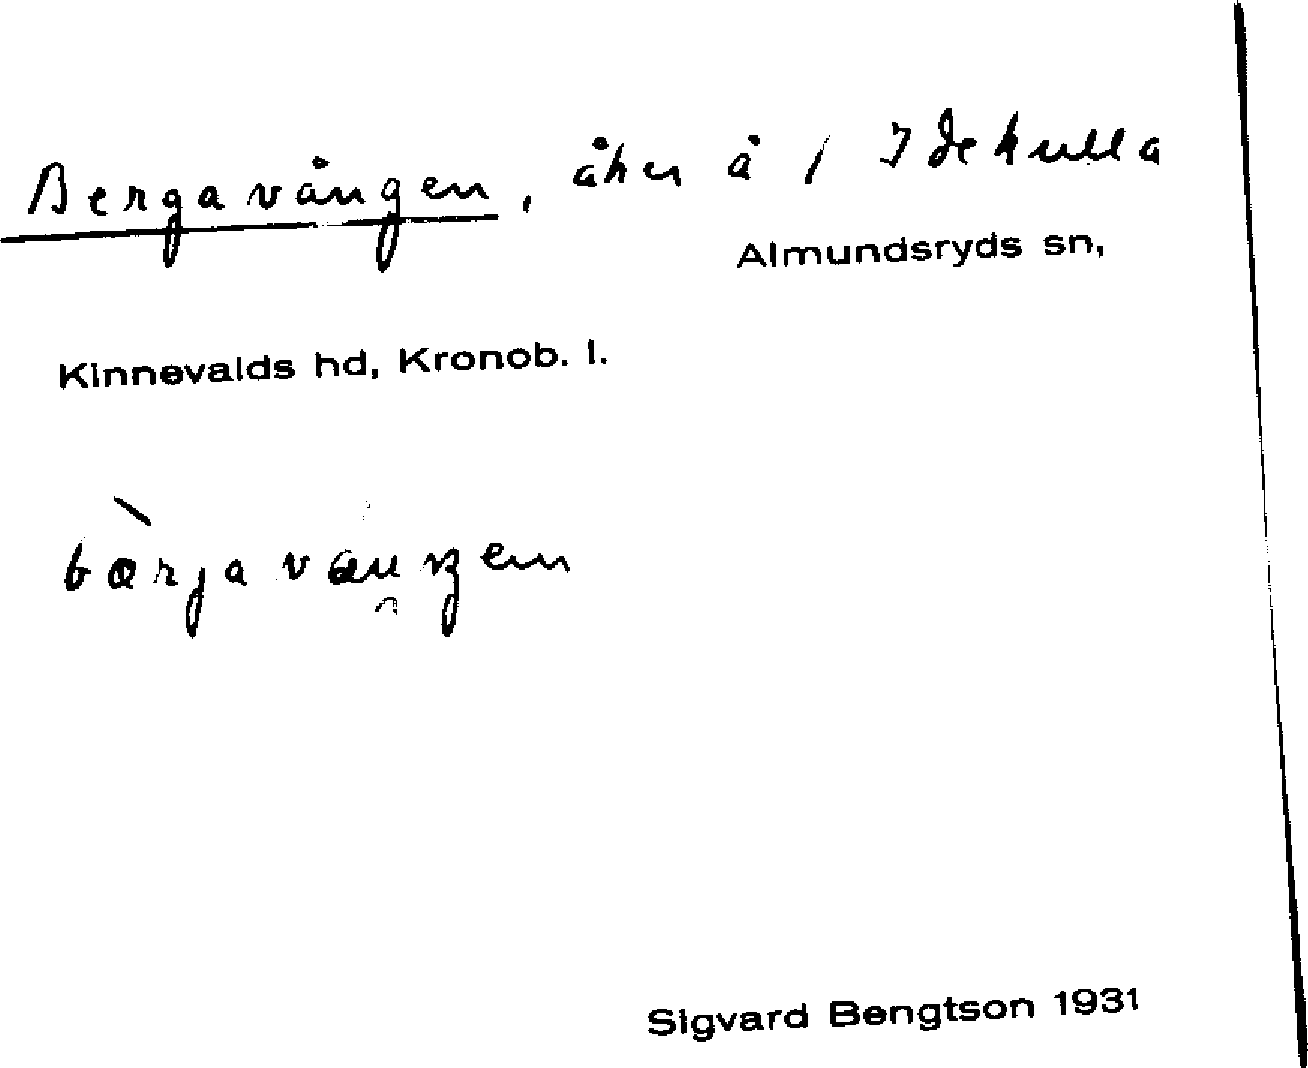 Bergavången, åker å 1 Idekulla
Almundsryds sn,
Kinnevalds hd, Kronob. l.
Sigvard Bengtson 1931